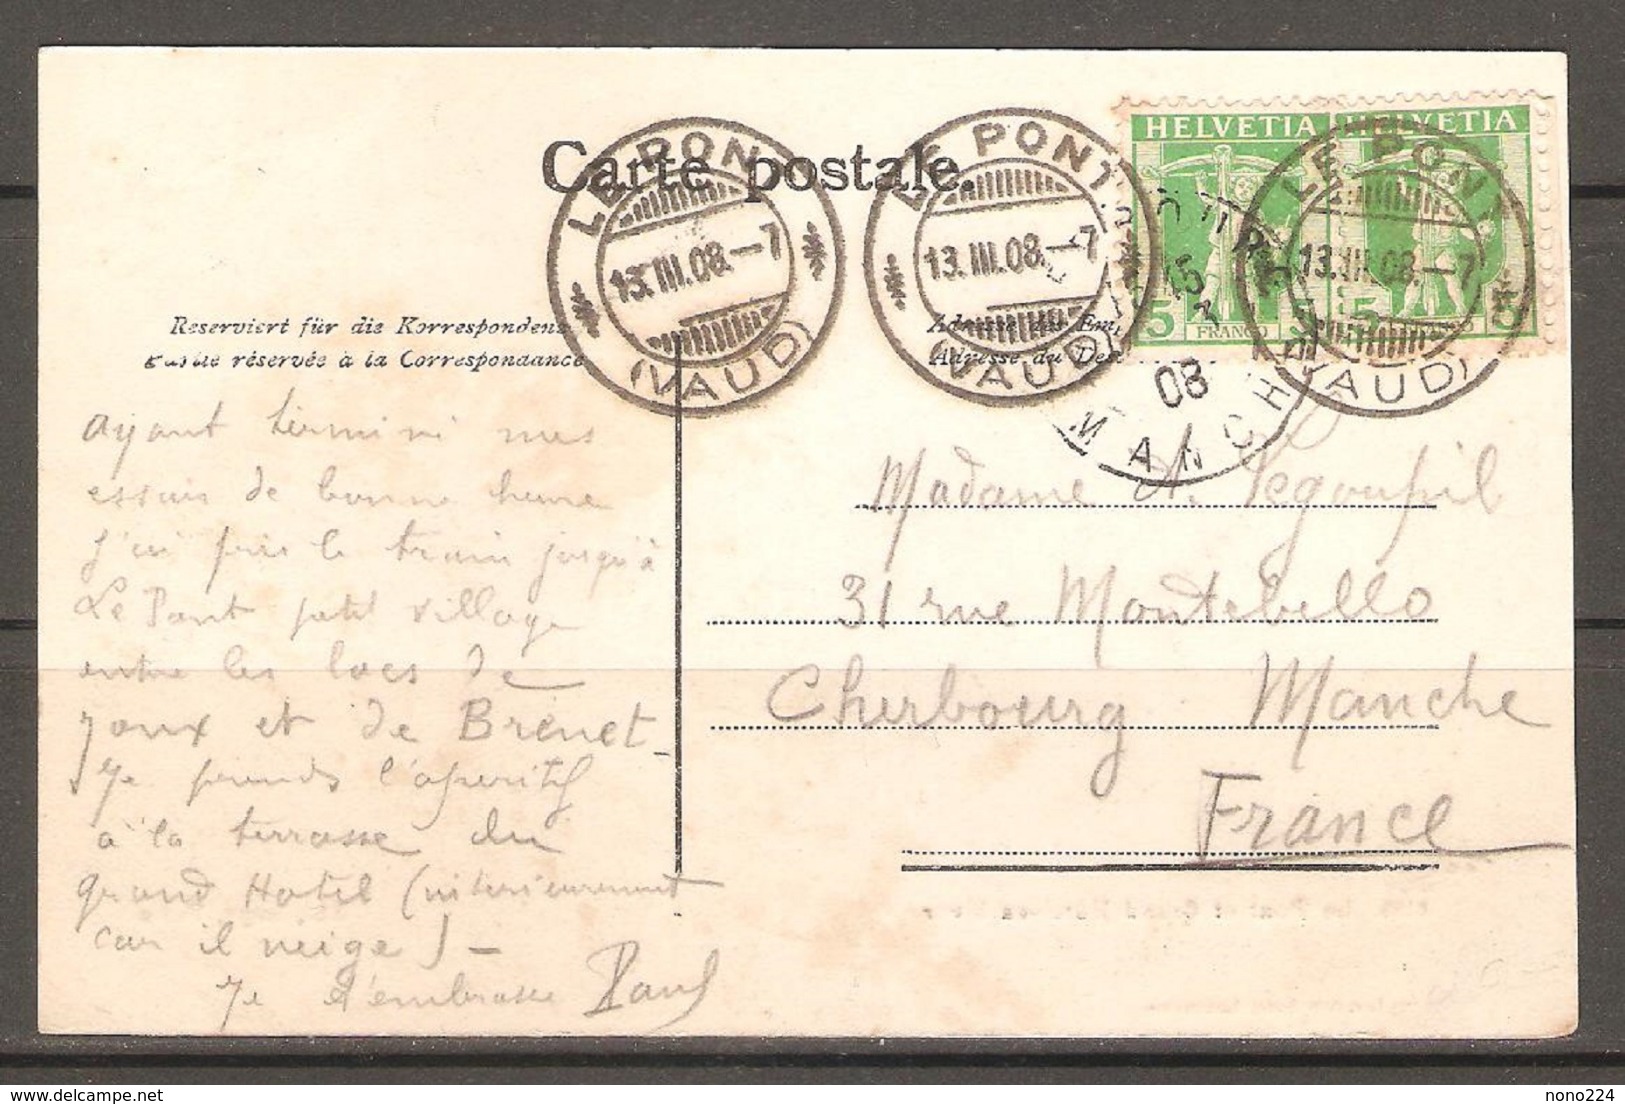 Carte postale.
LE PONT
13.III.08.—7
(VAUD)
LE PONT
13.III.08.—7
(VAUD)
HELVETIA
HELVETIA
5
FRANCO
5
5
LE PONT
13.III.08.—7
(VAUD)
15
08
MANCHE
Reserviert für die Korrespondenz
Partie réservée à la Correspondance
Adresse des Emp
Adresse du Dest
ayant terminé mes
essais de bonne heure
j'ai pris le train jusqu'à
Le Pont petit village
entre les lacs de
Joux et de Brenet_
Je prends l'aperitif
à la terrasse du
grand Hotel (intérieurement
car il neige) —
Je t'embrasse Paul
Madame A. Legoupil
31 rue Montebello
Cherbourg Manche
France
nono224